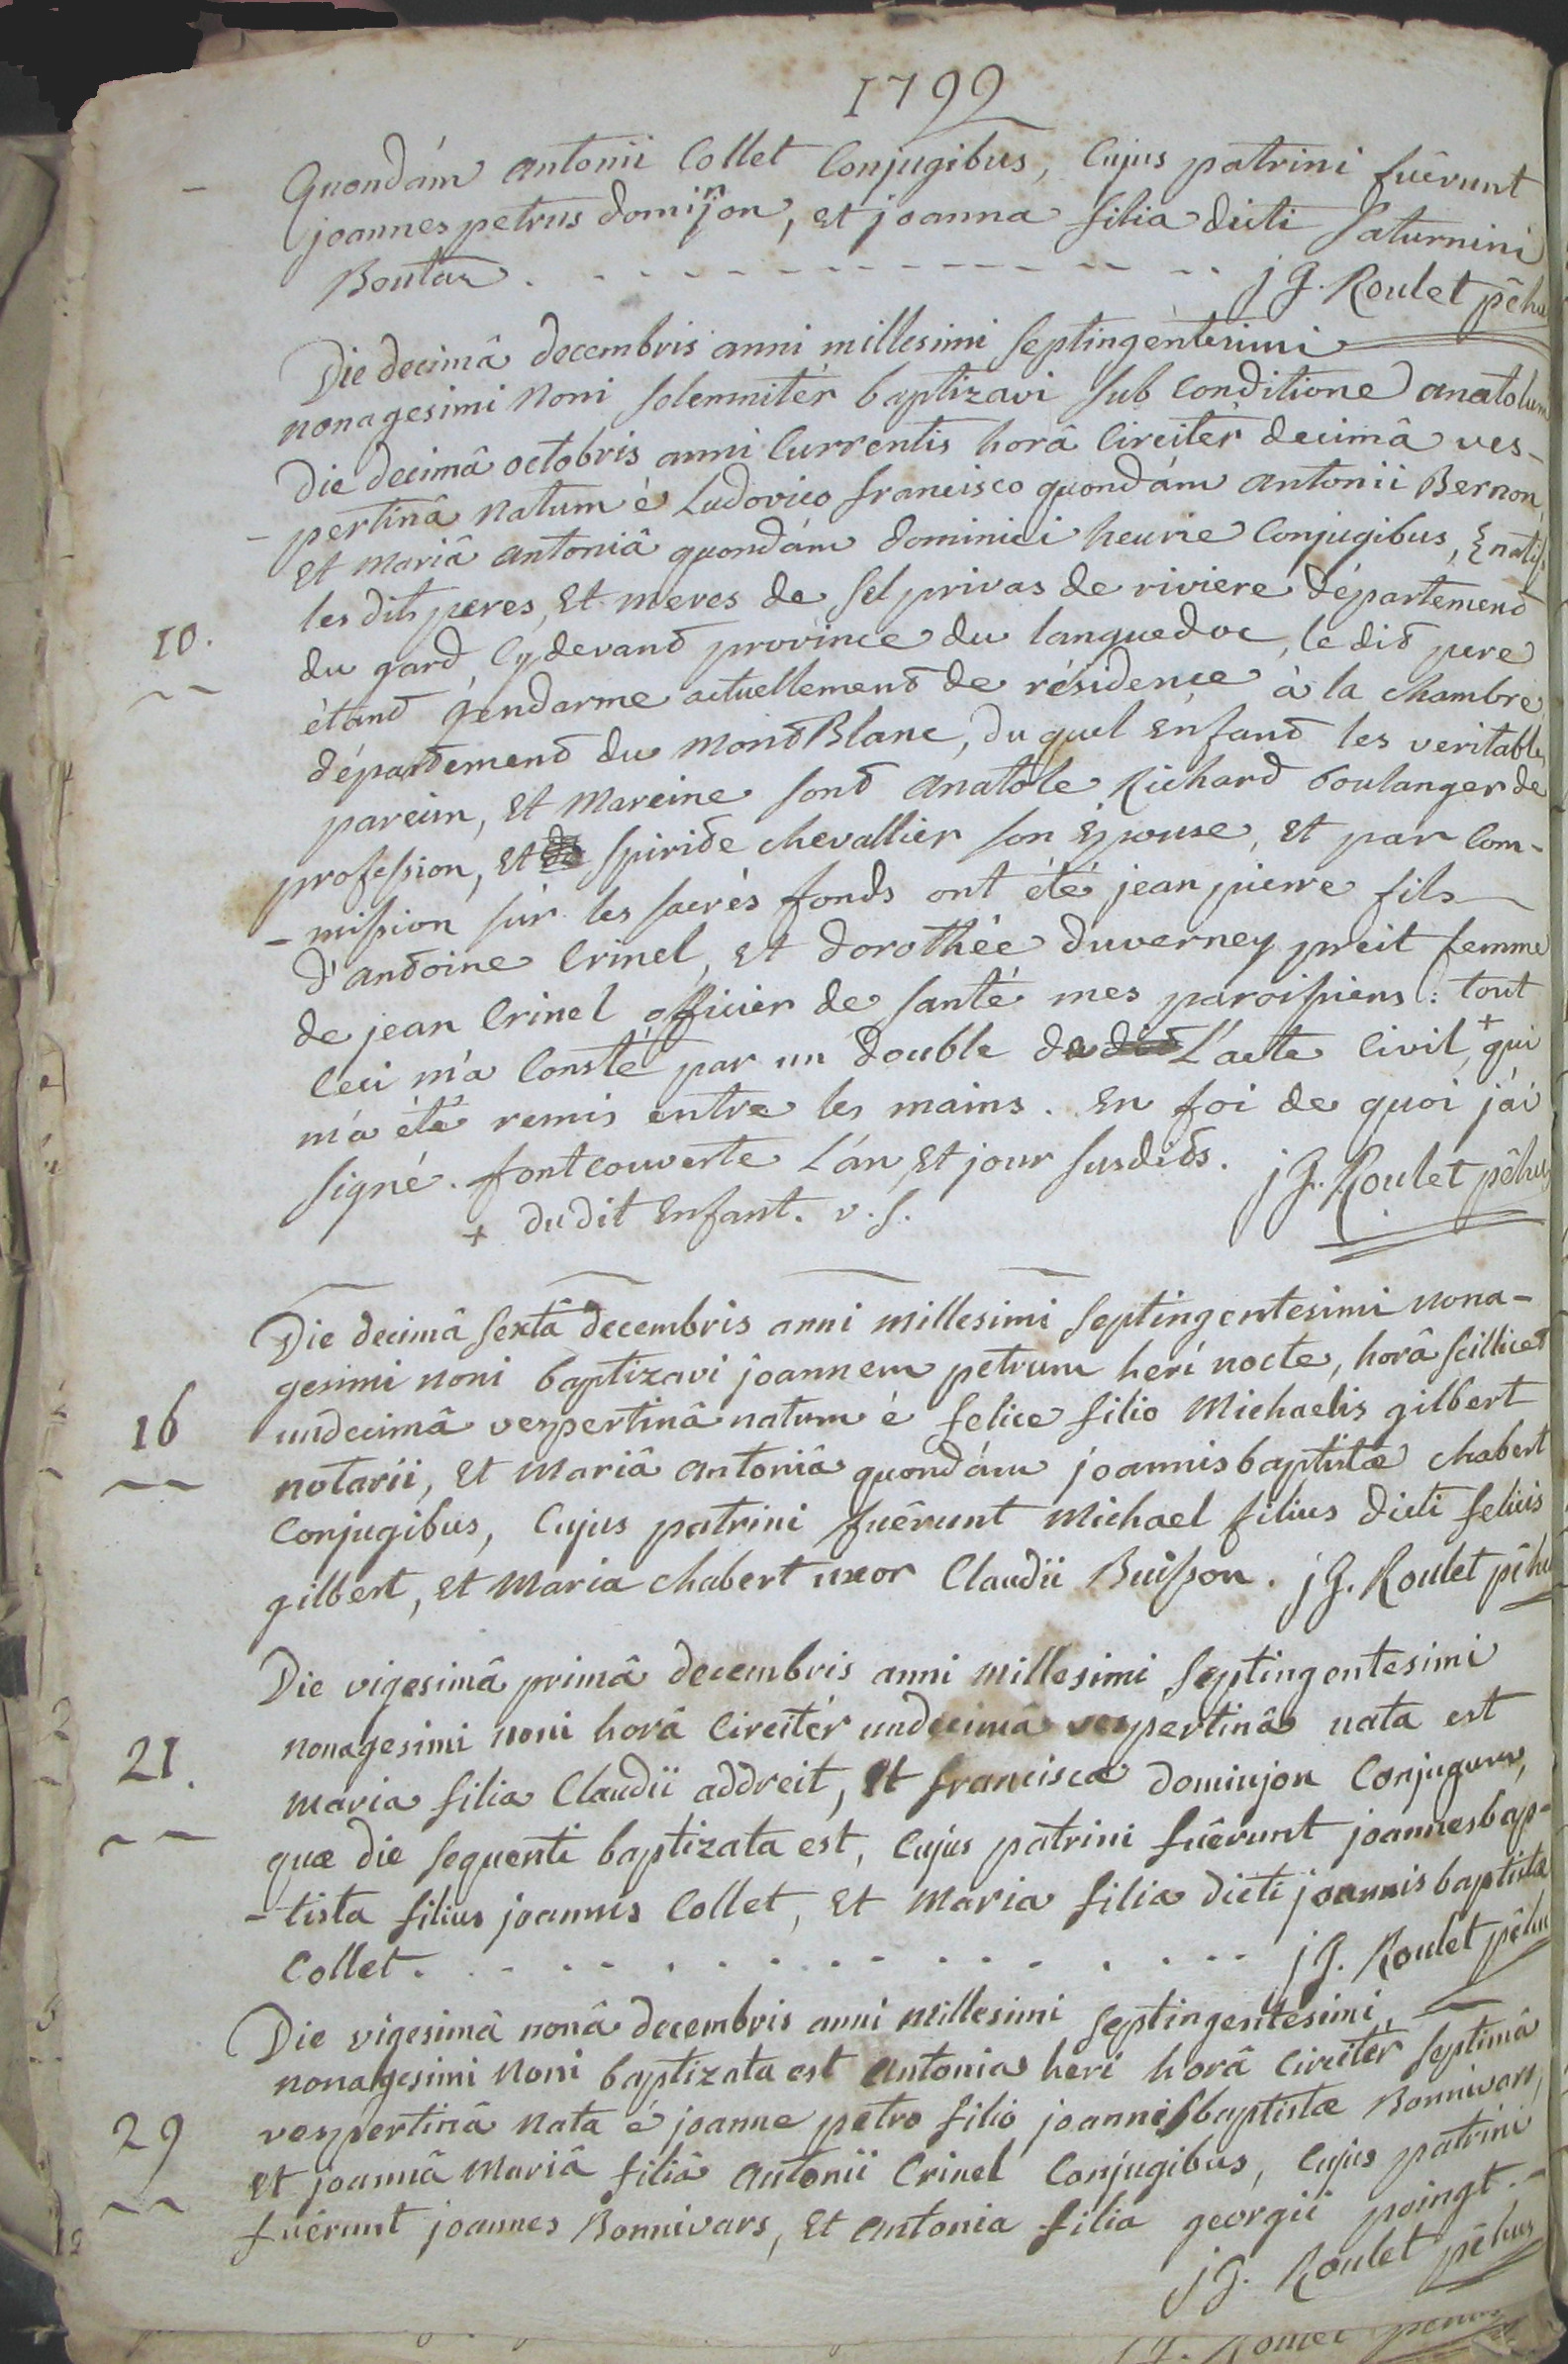 1799
Quondám antonii Collet Conjugibus, Cujus patrini fuêrunt
joannes petrus dominjon, et joanna filia dicti Saturnini
Boutaz. - - - - - - - - - - - - - - jG. Roulet pêhus
Die decimâ decembris anni millesimi septingèntesimi
nonagesimi noni solemnitèr baptizavi sub conditione anatolum
Die decimâ octobris anni Currentis horâ Circitèr decimâ ves-
- pertinâ natum è Ludovico francisco quondám antonii Bernon,
10.
et mariâ antoniâ quondám dominici heurie Conjugibus, natifs
les dits peres, et meres de sel privas de riviere département
du gard, Cy devant province du languedoc, le dit pere
étant gendarme actuellement de résidence à la chambre
département du mont Blanc, du quel enfant les veritables
parein, et mareine sont anatole Richard boulanger de
profession, et spiride chevallier son epouse, et par Com-
- mission sur les sacrés fonds ont été jean pierre fils
d'antoine Crinel, et dorothée duverney preit femme
de jean Crinel officier de santé mes paroissiens : tout
Ceci m'a Consté par un double de L'acte Civil, + qui
m'a été remis entre les mains. en foi de quoi j'ai
signé. fontcouverte L'an, et jour susdits. jG. Roulet pêhus
+ dudit enfant. v. s.
Die decimâ sextâ decembris anni millesimi septingentesimi nona-
gesimi noni baptizavi joannem petrum herì nocte, horâ scillicet
16
undecimâ vespertinâ natum è felice filio Michaelis gilbert
notarii, et mariâ antoniâ quondám joannis baptistæ chabert
Conjugibus, Cujus patrini fuêrunt Michael filius dicti felicis
gilbert, et maria chabert uxor Claudii Buisson. jG. Roulet pêhus
Die vigesimâ primâ decembris anni millesimi septingentesimi
21.
nonagesimi noni horâ Circitèr undecimâ vespertinâ nata est
maria filia Claudii addreit, et franciscæ dominjon Conjugum,
quæ die sequenti baptizata est, Cujus patrini fuêrunt joannes bap-
- tista filius joannis Collet, et maria filia dicti joannis baptistæ
Collet. - - - - - - - - - - - - - - jG. Roulet pêhus
Die vigesimâ nonâ decembris anni millesimi septingentesimi
nonagesimi noni baptizata est antonia herì horâ Circitèr septimâ
29
vespertinâ nata è joanne petro filio joannis baptistæ Bonnivars,
et joannâ mariâ filiâ antonii Crinel Conjugibus, Cujus patrini
fuêrunt joannes Bonnivars, et antonia filia georgii poingt.
jG. Roulet pêhus